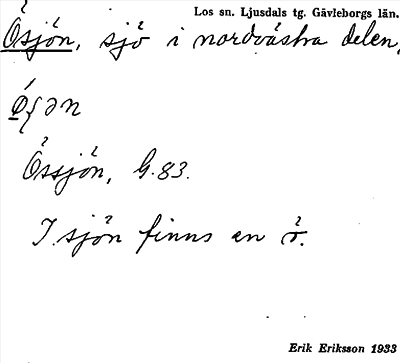 Los sn. Ljusdals tg. Gävleborgs län.
Ösjön, sjö i nordvästra delen.
Össjön, G. 83.
I sjön finns en ö.
Erik Eriksson 1933